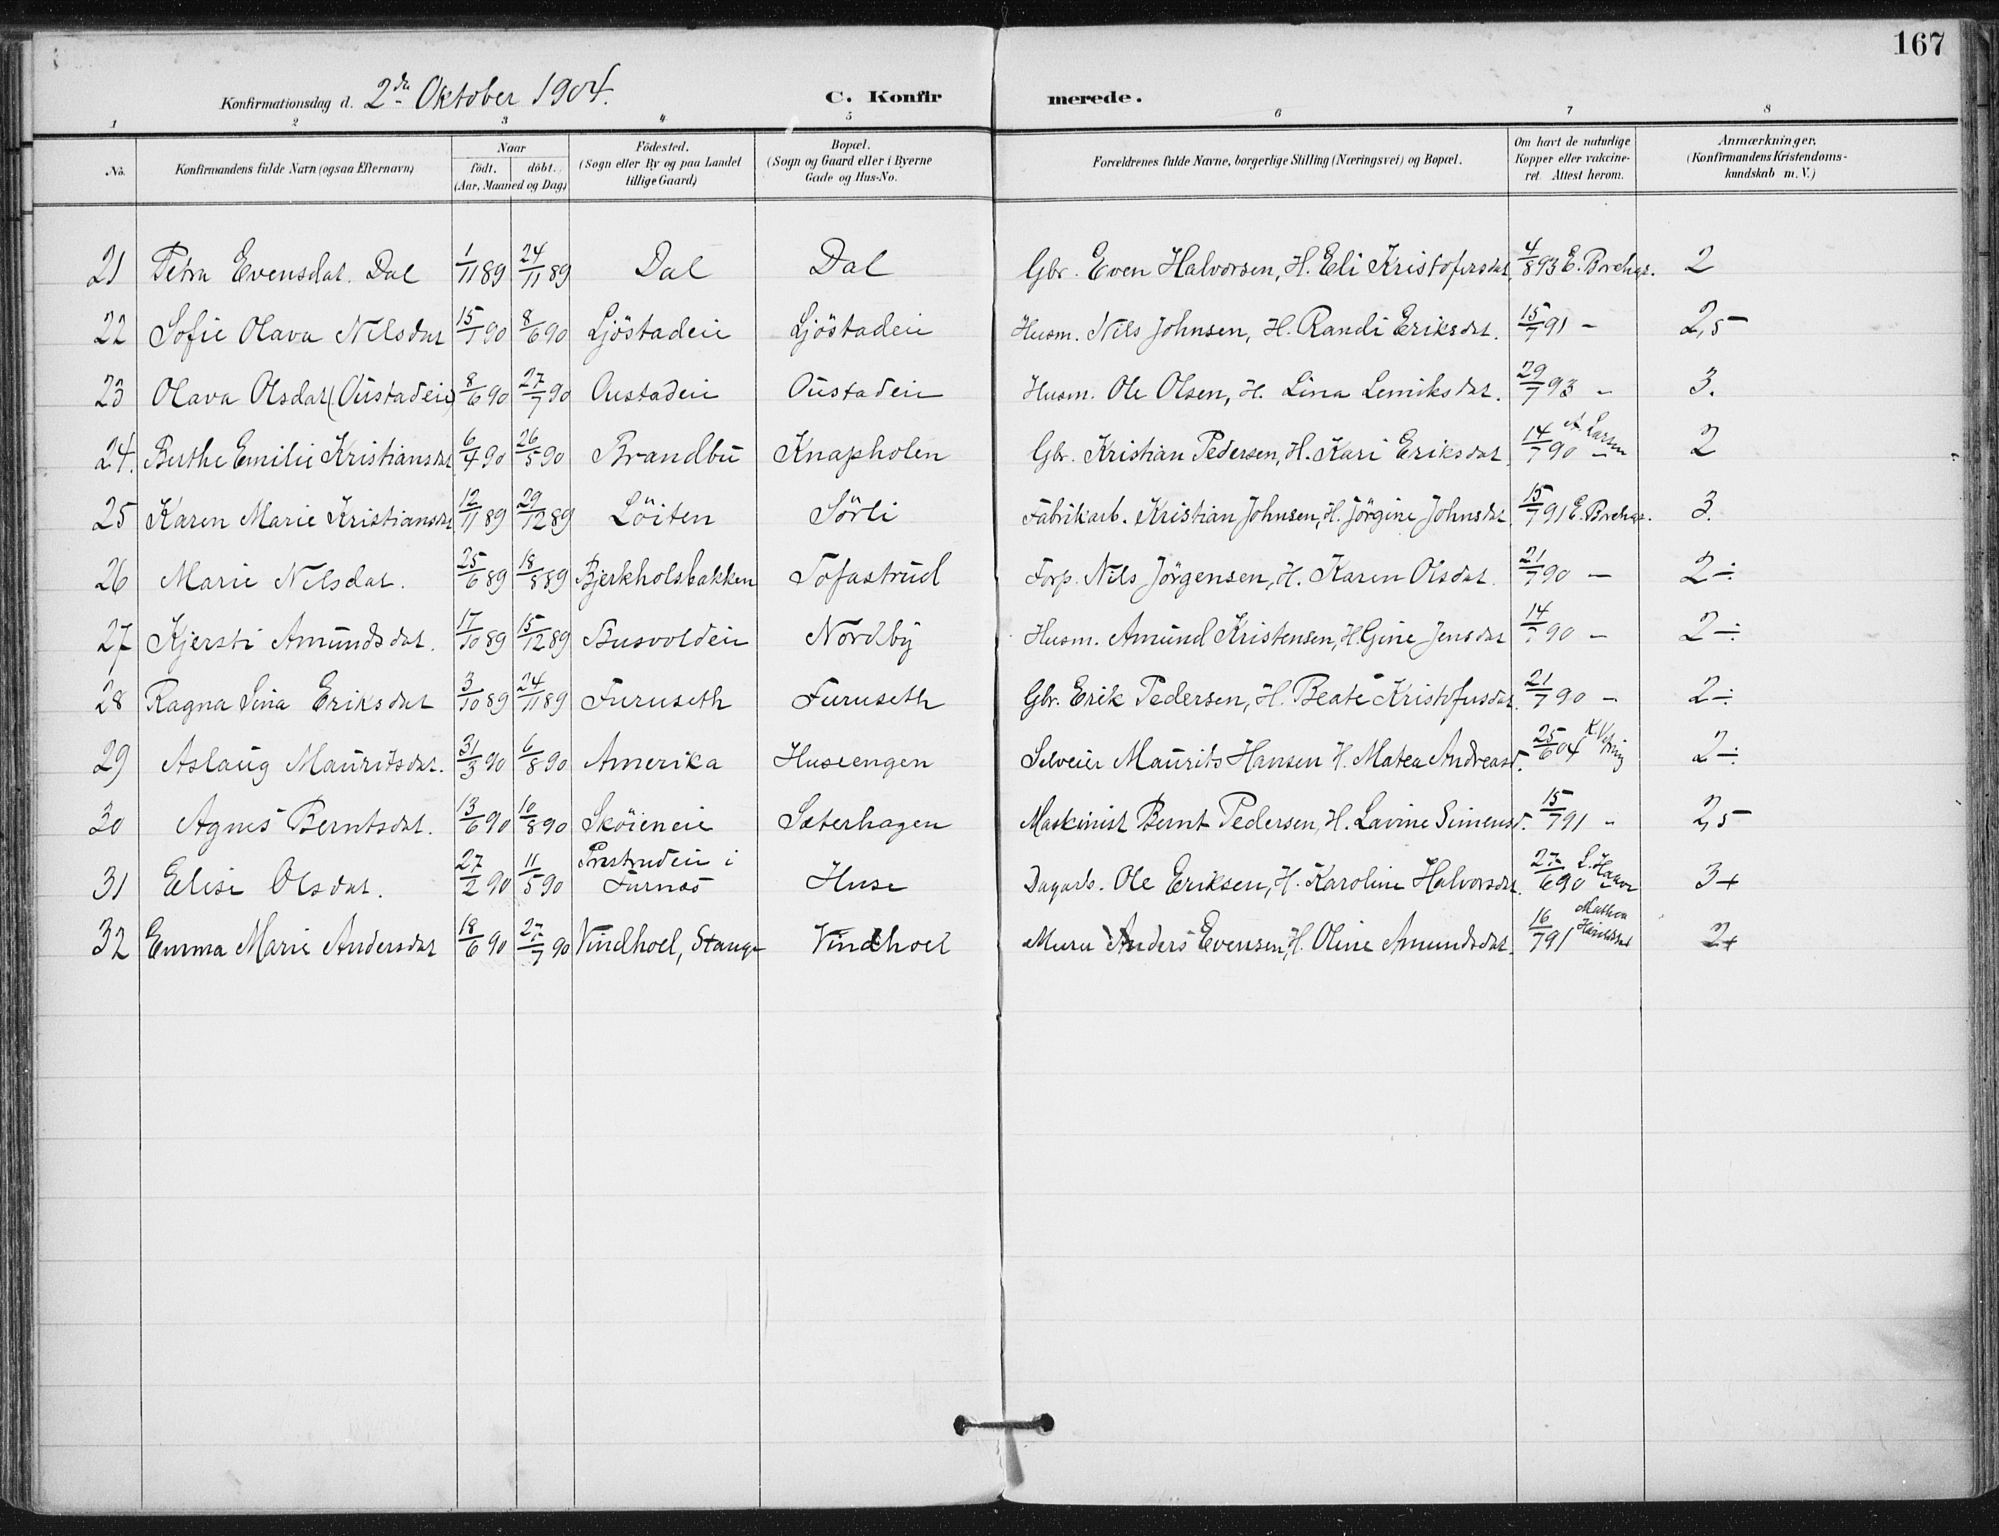 167
Konfirmationsdag d. 2den Oktober 1904.
C. Konfirmerede.
1 2 3 4 5 6 7 8
No. | Konfirmandens fulde Navn (ogsaa Efternavn) | Naar født. døbt. (Aar, Maaned og Dag) | Fødested. (Sogn eller By og paa Landet tillige Gaard) | Bopæl. (Sogn og Gaard eller i Byerne Gade og Hus-No. | Forældrenes fulde Navne, borgerlige Stilling (Næringsvei) og Bopæl. | Om havt de naturlige Kopper eller vakcineret. Attest herom. | Anmærkninger. (Konfirmandens Kristendomskundskab m. V.)
21 Petra Evensdat. Dal 1/11 89 24/11 89 Dal Dal Gbr. Even Halvorsen, H. Eli Kristofersdat. 4/8 93 E. Borchgr. 2
22 Sofie Olava Nilsdat 15/1 90 8/6 90 Ljöstadeie Ljöstadeie Husm. Nils Johnsen, H. Randi Eriksdat. 15/7 91 - 2,5
23 Olava Olsdat (Oustadeie) 8/6 90 27/7 90 Oustadeie Oustadeie Husm. Ole Olsen, H. Lina Lemiksdat. 29/7 93 - 3.
24. Berthe Emilie Kristiansdat 6/4 90 26/5 90 Brandbu Knapholen Gbr. Kristian Pedersen, H. Kari Eriksdat. 14/7 90 A. Larsen 2
25 Karen Marie Kristiansdat. 12/11 89 29/12 89 Löiten Sörli Fabrikarb. Kristian Johnsen, H. Jörgine Johnsdat 15/7 91 E. Borchgr. 3.
26 Marie Nilsdat. 25/6 89 18/8 89 Bjerkholsbakken Tofastrud Forp. Nils Jörgensen, H. Karen Olsdat. 21/7 90 - 2÷
27 Kjersti Amundsdat. 17/10 89 15/12 89 Busvoldeie Nordby Husm. Amund Kristensen, H. Gine Jensdat 14/7 90 - 2÷
28 Ragna Lina Eriksdat 3/10 89 24/11 89 Furuseth Furuseth Gbr. Erik Pedersen, H. Beate Kristofersdat. 21/7 90 - 2÷
29 Aslaug Mauritsdat. 31/3 90 6/8 90 Amerika Huseengen Selveier Maurits Hansen H. Matea Andreasd. 25/6 04 2÷
30 Agnes Berntsdat. 13/6 90 10/8 90 Sköieneie Sæterhagen Maskinist Bernt Pedersen, H. Lavine Simensd. 15/7 91 - 2,5
31 Elise Olsdat. 27/2 90 11/5 90 Prestrudeie i Furnes Huse Dagarb. Ole Eriksen, H. Karoline Halvorsdat. 27/6 90 3+
32 Emma Marie Andersdat 18/6 90 27/7 90 Vindhoel, Stange Vindhoel Murer Anders Evensen, H. Oline Amundsdat. 16/7 91 Mathea 2+